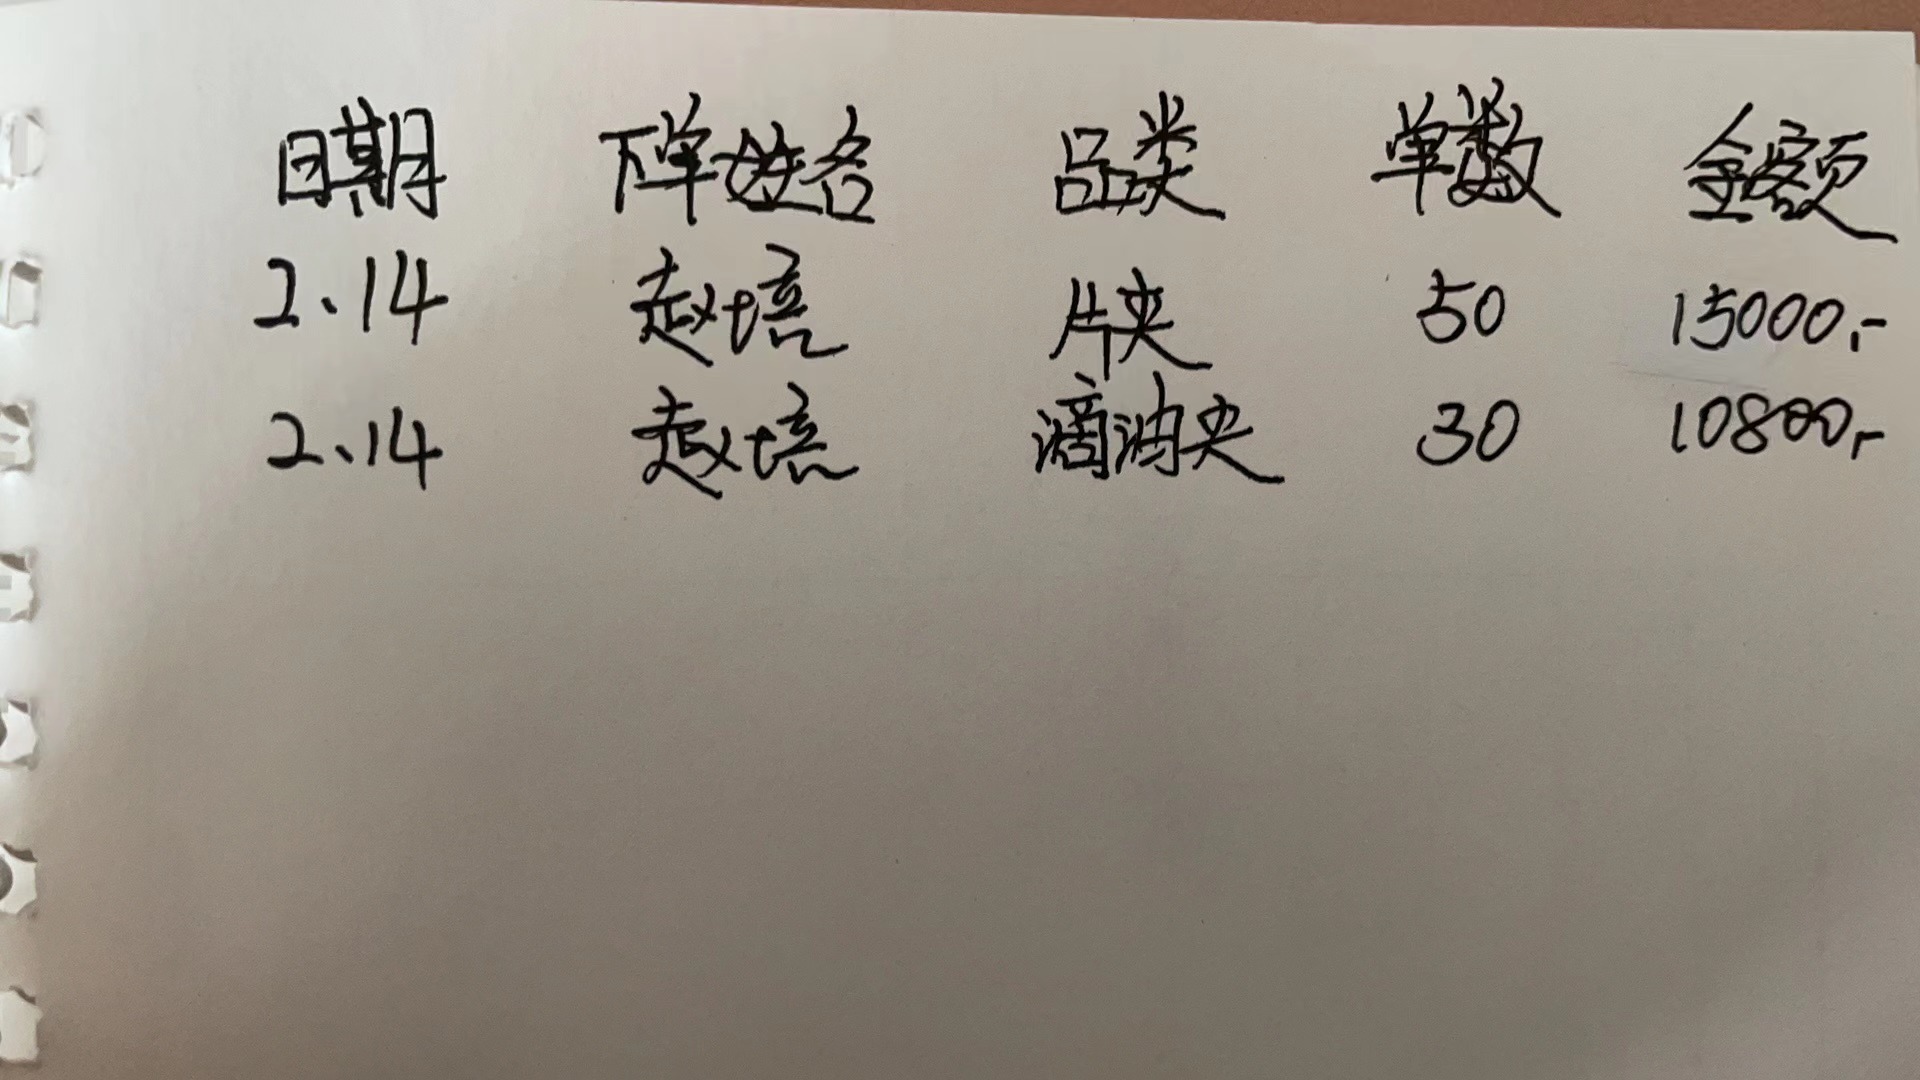 日期 下单姓名 品类 单数 金额
2.14 赵培 片夹 50 15000.-
2.14 赵培 滴油夹 30 10800.-